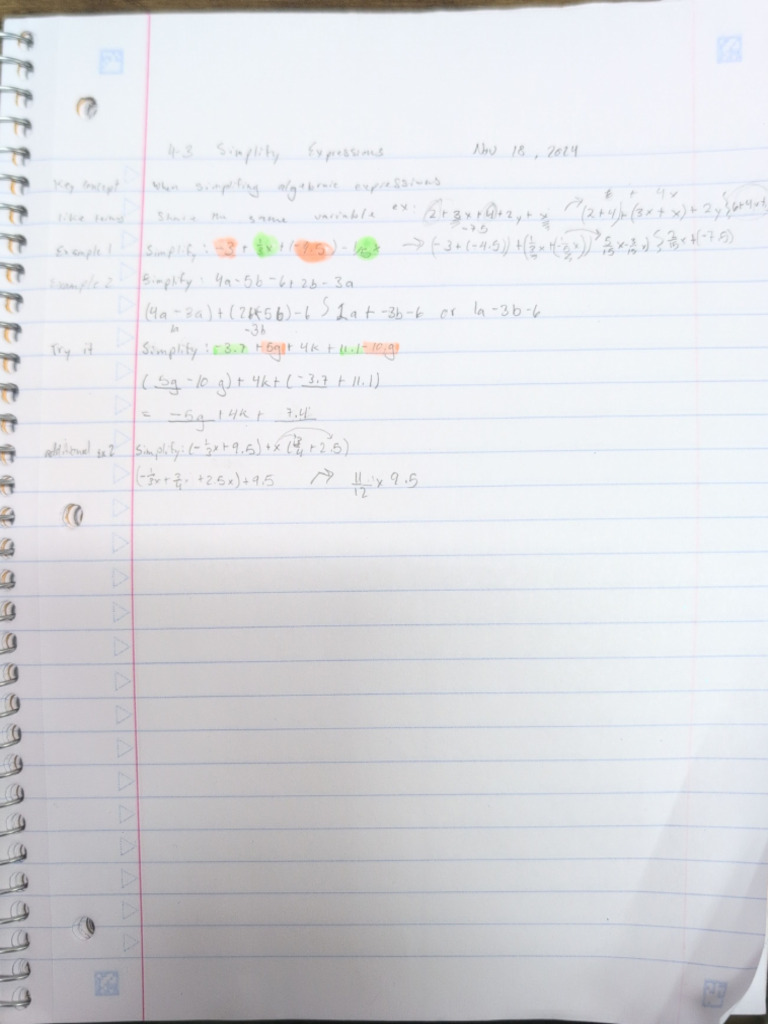 4-3 Simplify Expressions Nov 18, 2024
Key concept When simplifing algebraic expressions
like terms share the same variable ex: 2+3x+4+2y+x → (2+4)+(3x+x)+2y
6 + 4x
Example 1 Simplify: -3 + + (-4.5) - → (-3+(-4.5))+ +(-7.5)
-7.5
Example 2 Simplify: 4a-5b-6+2b-3a
(4a-3a)+(2b-5b)-6 1a+-3b-6 or 1a-3b-6
1a -3b
Try it Simplify: -3.7 +5g+ 4k + 11.1-10g
(5g-10g)+4k+(-3.7+11.1)
= -5g+4k+ 7.4
additional ex 2 Simplify: (-1/3x+9.5)+x(3/4+2.5)
(-1/3x+3/4 +2.5x)+9.5 → 11/12 x 9.5